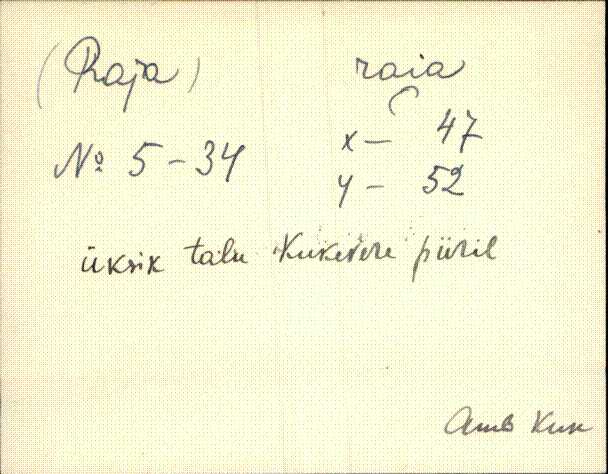 (Raja) raia
№ 5-34 x - 47
y - 52
üksik talu Kukevere piiril
Amb Kuk